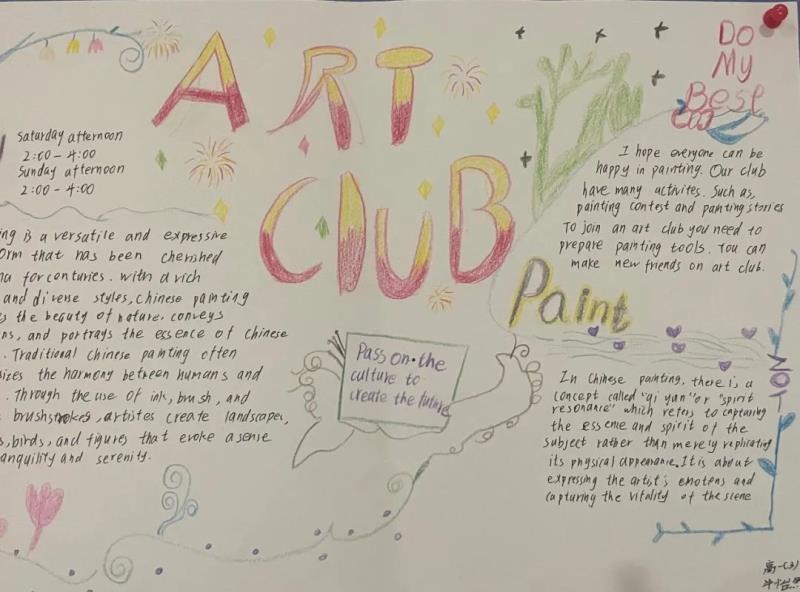 ART
CLUB
Saturday afternoon
2:00-4:00
Sunday afternoon
2:00-4:00
ing is a versatile and expressive
orm that has been cherished
na for centuries. With a rich
and diverse styles, Chinese painting
s the beauty of nature, conveys
ns, and portrays the essence of Chinese
. Traditional Chinese painting often
sizes the harmony between humans and
. Through the use of ink, brush, and
brushstrokes, artists create landscapes,
s, birds, and figures that evoke a sense
anquility and serenity.
Pass on the
culture to
create the future
Do
My
Best
I hope everyone can be
happy in painting. Our club
have many activites. Such as,
painting contest and painting stories
To join an art club you need to
prepare painting tools. You can
make new friends on art club.
Paint
In Chinese painting, there is a
concept called "qi yun" or "spirit
resonance" which refers to capturing
the essence and spirit of the
subject rather than merely replicating
its physical appearance. It is about
expressing the artist's emotens and
capturing the vitality of the scene
高一(3)